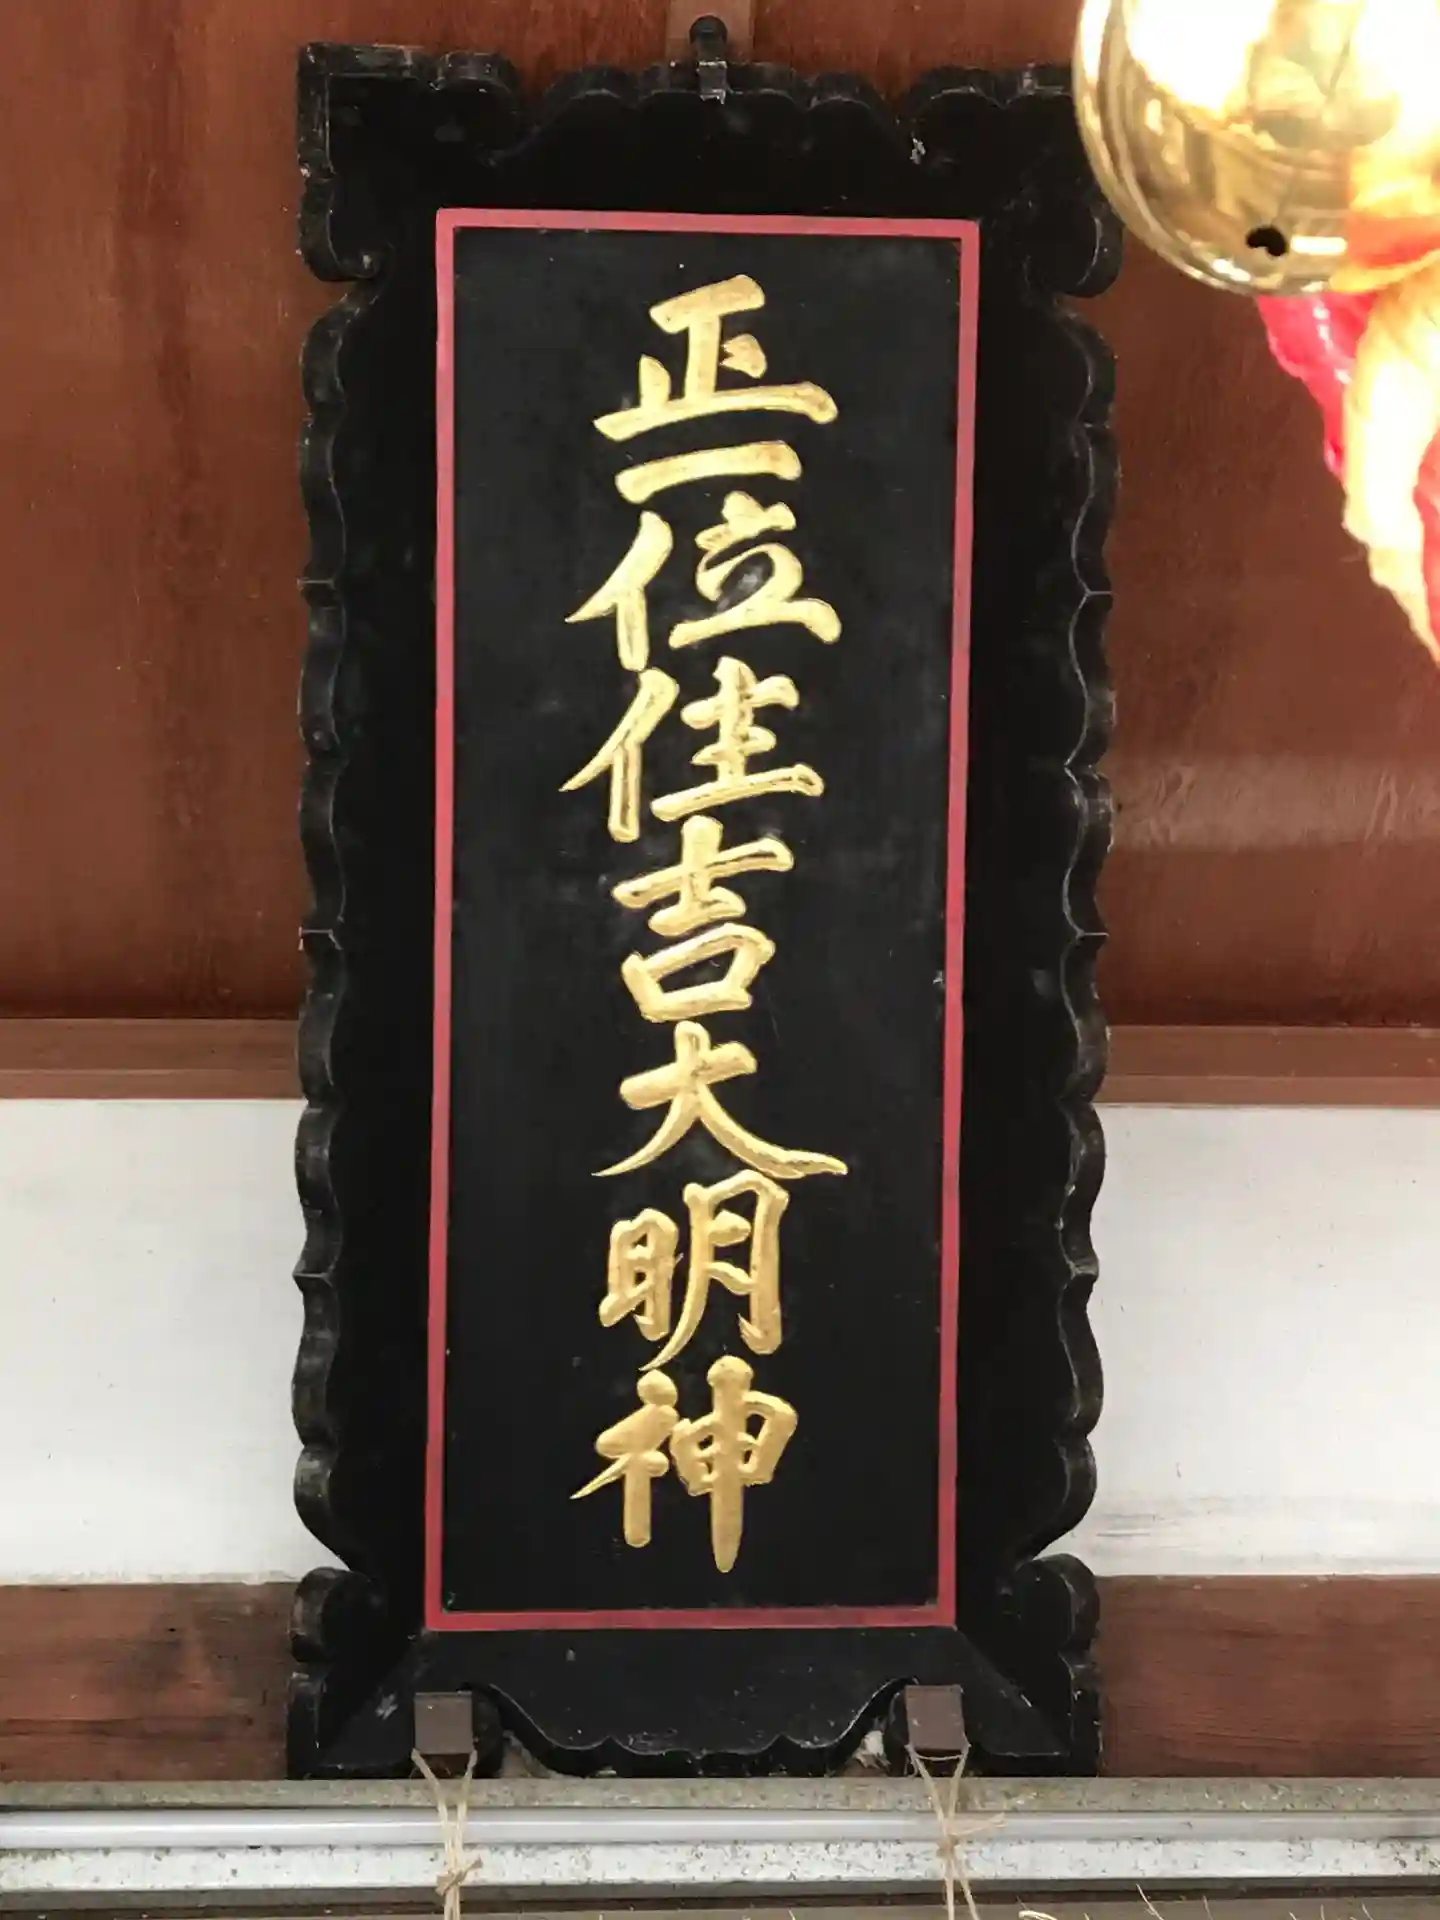 正一位住吉大明神